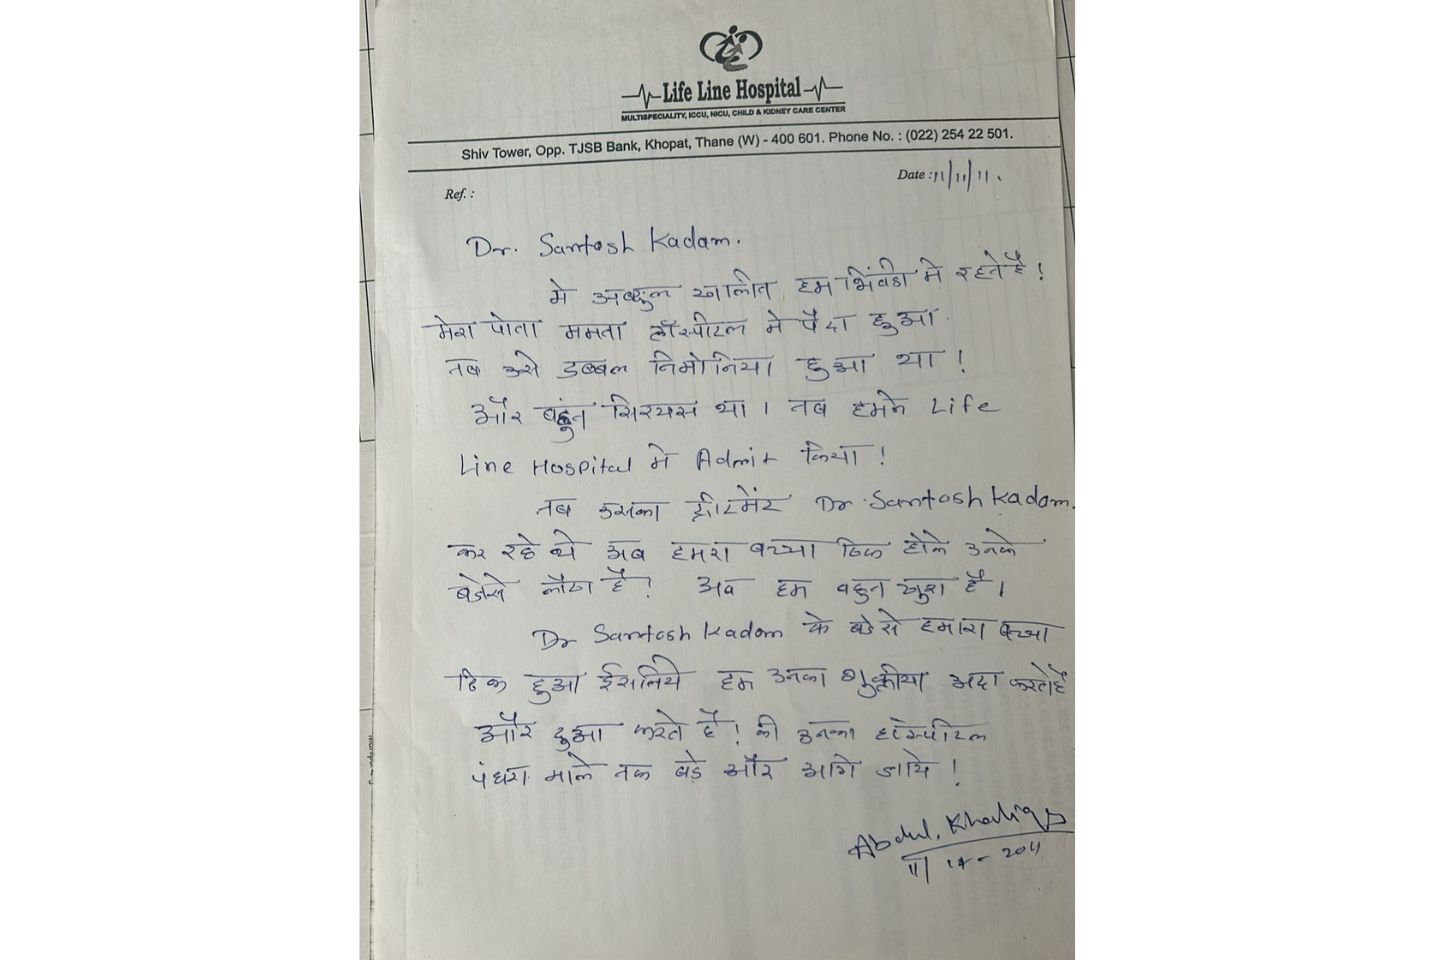 Life Line Hospital
MULTISPECIALITY, ICCU, NICU, CHILD & KIDNEY CARE CENTER
Shiv Tower, Opp. TJSB Bank, Khopat, Thane (W) - 400 601. Phone No. : (022) 254 22 501.
Date : 11/11/11.
Ref. :
Dr. Santosh Kadam.
मे अब्दुल खालीत हम भिंवडी मे रहते है !
मेरा पोता ममता हॉस्पीटल मे पैदा हुआ.
तब उसे डब्बल निमोनिया हुआ था !
और बहुंत सिरयस था । तब हमने Life
Line Hospital मे Admit किया !
तब उसका ट्रीटमेंट Dr. Santosh Kadam.
कर रहे थे अब हमरा बच्चा ठिक होके उनके
है ! अब हम बहुत खुश है ।
Dr Santosh Kadam के हमारा बच्चा
ठिक हुआ ईसलिये हम उनका शुक्रीया अदा करतेहै
और दुआ करते है ! की उनका हॉस्पीटल
पंधरा माले तक बड़े और आगे जाये !
Abdul. Khaliq